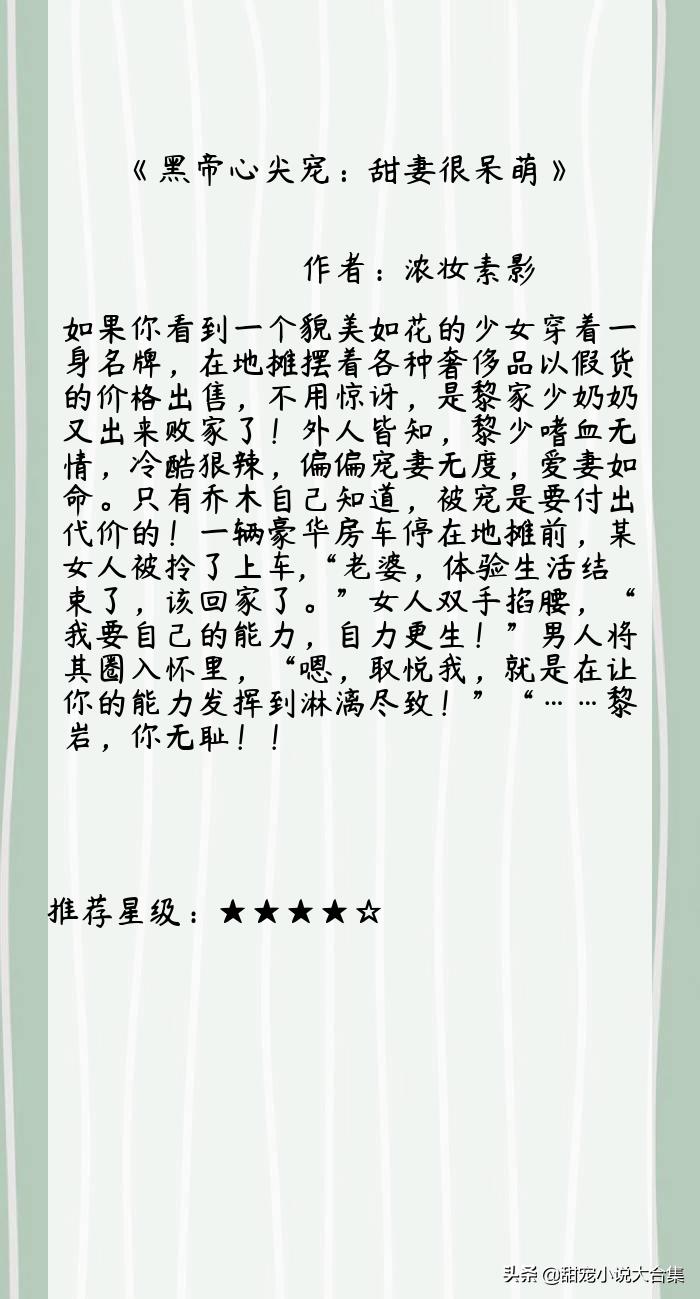 《黑帝心尖宠：甜妻很呆萌》
作者：浓妆素影
如果你看到一个貌美如花的少女穿着一
身名牌，在地摊摆着各种奢侈品以假货
的价格出售，不用惊讶，是黎家少奶奶
又出来败家了！外人皆知，黎少嗜血无
情，冷酷狠辣，偏偏宠妻无度，爱妻如
命。只有乔木自己知道，被宠是要付出
代价的！一辆豪华房车停在地摊前，某
女人被拎了上车,“老婆，体验生活结
束了，该回家了。”女人双手掐腰，“
我要自己的能力，自力更生！”男人将
其圈入怀里，“嗯，取悦我，就是在让
你的能力发挥到淋漓尽致！”“……黎
岩，你无耻！！
推荐星级：★★★★☆
头条 @甜宠小说大合集